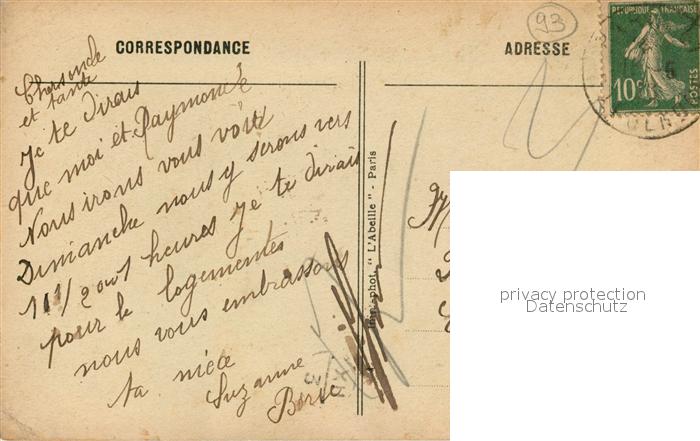 93
RÉPUBLIQUE FRANÇAISE
10c
POSTES
CORRESPONDANCE
ADRESSE
Cher oncle
et tante
Je te dirais
que moi et Raymonde
Nous irons vous voir
Dimanche nous y serons vers
11 1/2 heures Je te dirais
pour le logements
nous vous embrassons
ta niece
Suzanne
Imp.-phot. "L'Abeille" - Paris
privacy protection
Datenschutz